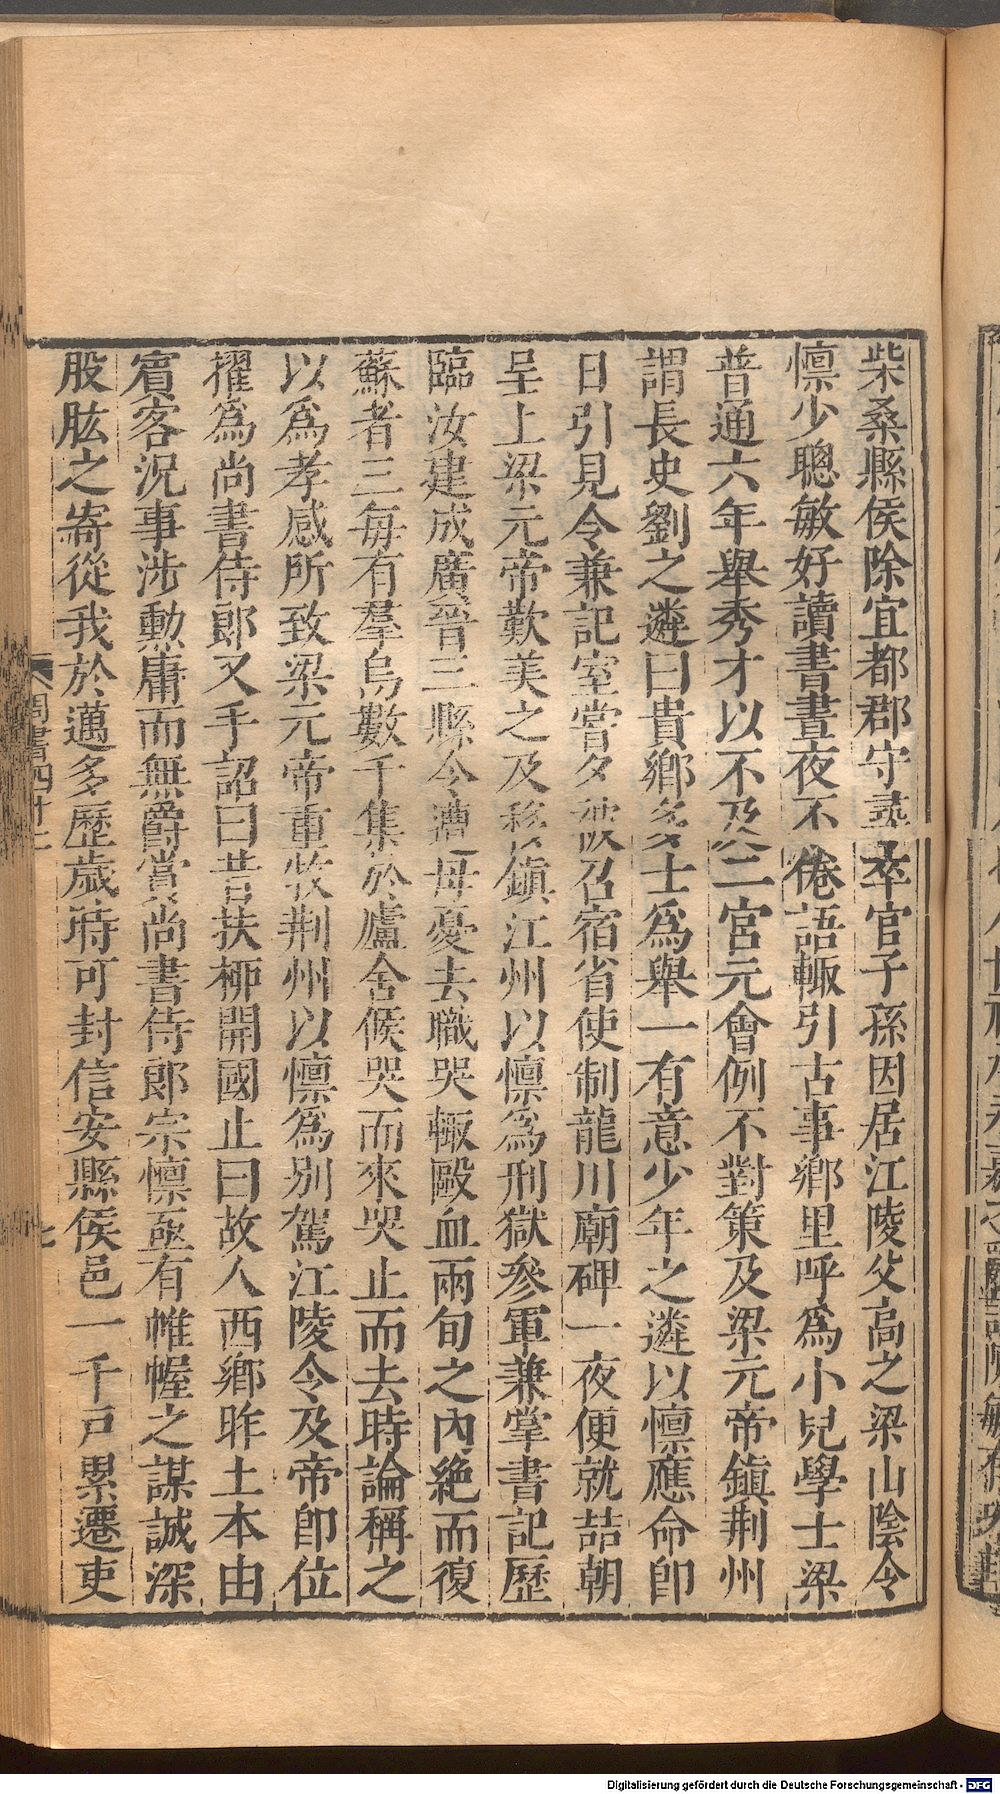 柴桑縣侯除宜都郡守尋卒官子孫因居江陵父高之梁山陰令
懍少聰敏好讀書晝夜不倦語輙引古事鄉里呼爲小兒學士梁
普通六年舉秀才以不及二宮元會例不對策及梁元帝鎮荆州
謂長史劉之遴曰貴鄉多士爲舉一有意少年之遴以懍應命即
日引見令兼記室嘗夕被召宿省使制龍川廟碑一夜便就詰朝
呈上梁元帝歎美之及移鎮江州以懍爲刑獄參軍兼掌書記歷
臨汝建成廣晉三縣令遭母憂去職哭輙毆血兩旬之內絶而復
蘇者三每有羣烏數千集於廬舍候哭而來哭止而去時論稱之
以爲孝感所致梁元帝重牧荆州以懍爲別駕江陵令及帝即位
擢爲尚書侍郎又手詔曰昔扶柳開國止曰故人西鄉胙土本由
賓客況事涉勲庸而無爵賞尚書侍郎宗懍亟有帷幄之謀誠深
股肱之寄從我於邁多歷歲時可封信安縣侯邑一千戸累遷吏
周書四十二
七
Digitalisierung gefördert durch die Deutsche Forschungsgemeinschaft - DFG